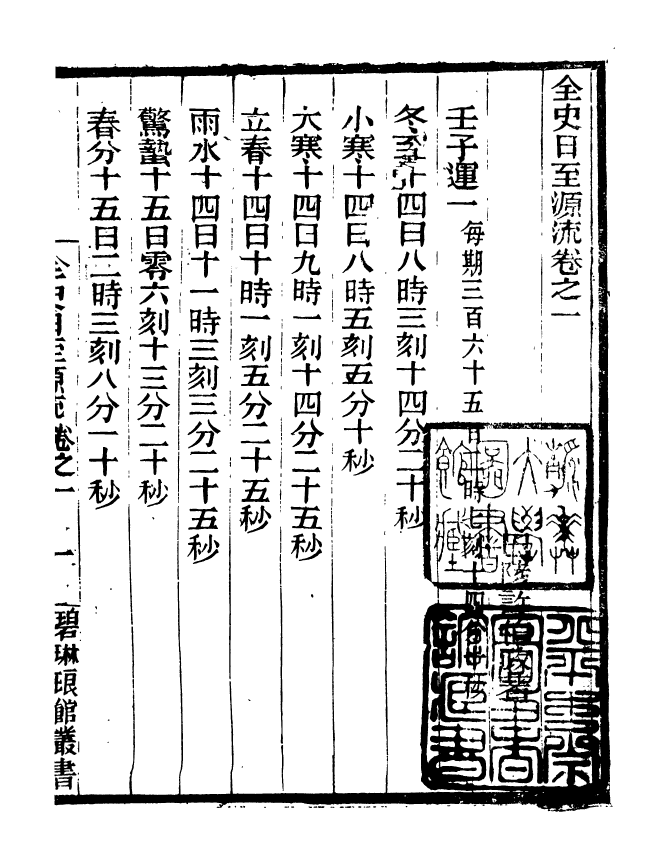 全史日至源流卷之一
許伯政著
壬子運一 每期三百六十五日 時 刻十四分
冬至十四日八時三刻十四分二十秒
小寒十四日八時五刻五分十秒
大寒十四日九時一刻十四分二十五秒
立春十四日十時一刻五分二十五秒
雨水十四日十一時三刻三分二十五秒
驚蟄十五日零六刻十三分二十秒
春分十五日二時三刻八分一十秒
全史日至源流卷之一 一 碧琳琅館叢書